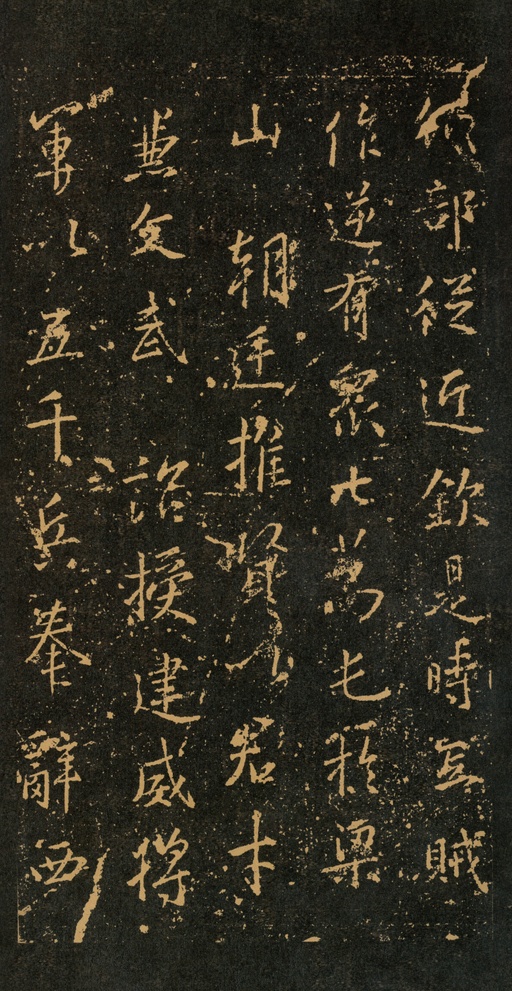 部從近欽是時氐賊
作逆有眾七萬屯於梁
山 朝廷推賢以君才
兼文武 詔授建威將
軍以五千兵奉辭西